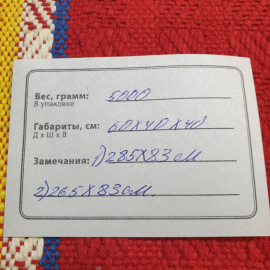 Вес, грамм: 5000
В упаковке
Габариты, см: 60X40X40
Д х Ш х В
Замечания: 1) 285X83 см
2) 265X83 см.